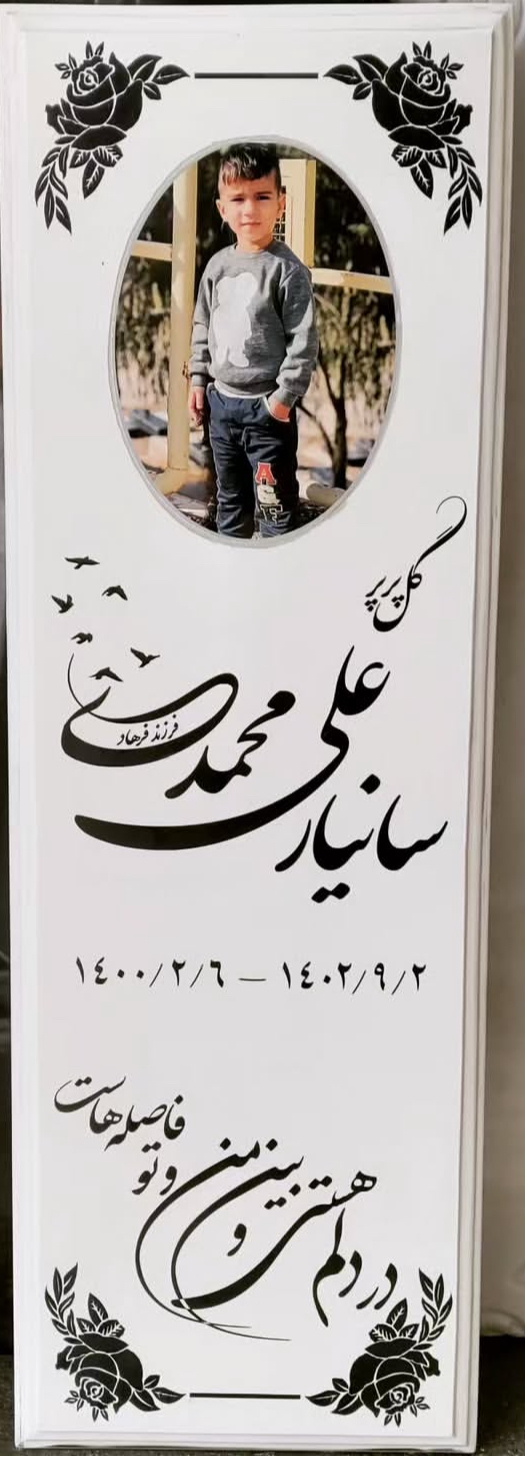 گل پرپر
سانیار علی محمدی
فرزند فرهاد
۱٤۰۰/۲/٦ — ۱٤۰۲/۹/۲
در دلم هستی و بین من و تو فاصله هاست